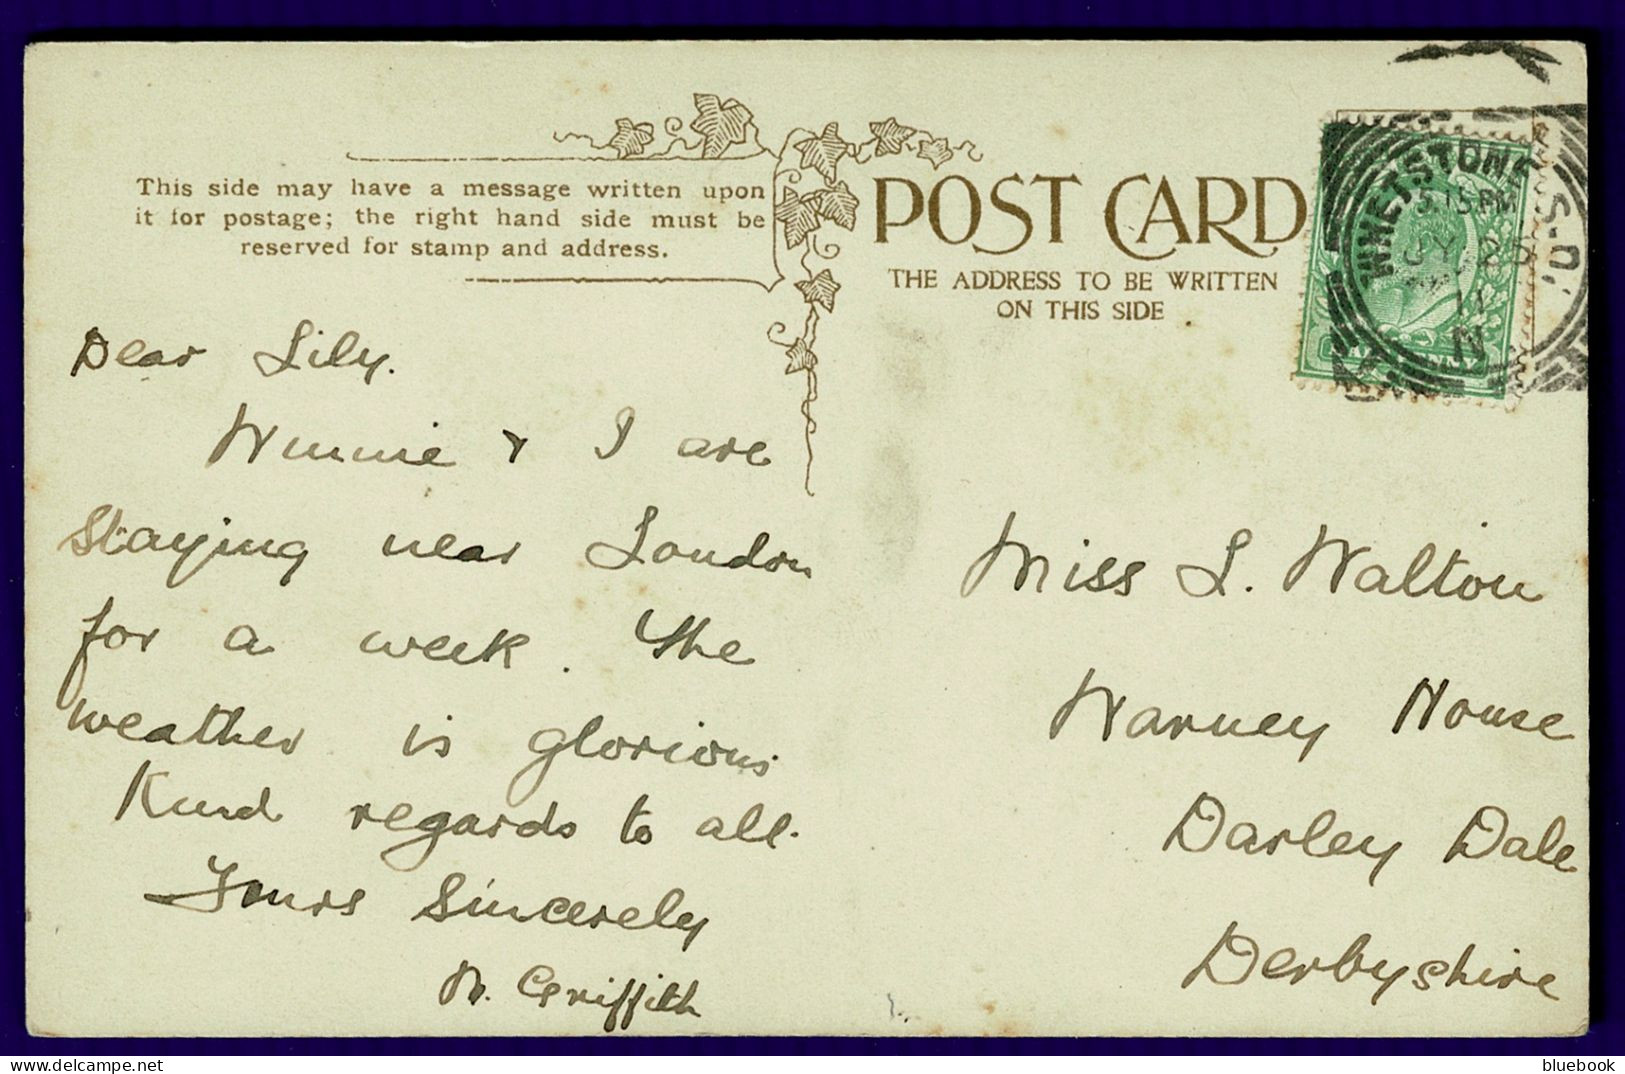 This side may have a message written upon
it for postage; the right hand side must be
reserved for stamp and address.
POST CARD
THE ADDRESS TO BE WRITTEN
ON THIS SIDE
WHETSTONE S.O.
3.15 PM
JY
11
N
Dear Lily.
Winnie & I are
staying near London
for a week. The
weather is glorious.
Kind regards to all.
Yours Sincerely
Griffith
Miss L. Walton
Warney House
Darley Dale
Derbyshire
bluebook